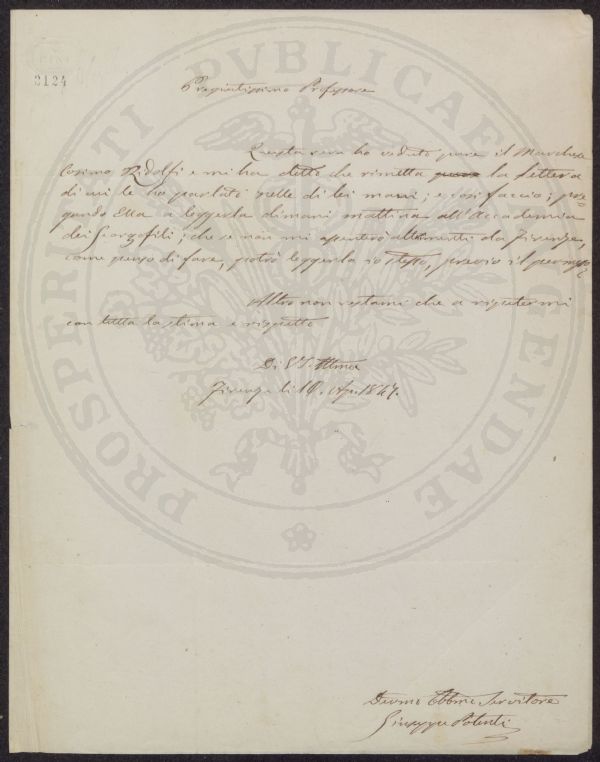 2124
PROSPERITATI PVBLICAE AVGENDAE
Pregiatissimo Professore
Questa sera ho veduto pure il Marchese
Cosimo Ridolfi e mi ha detto che rimetta la Lettera
di cui le ho parlato nelle di lei mani; e così faccio; pre=
gando Ella a leggerla dimani mattina all'Accademia
dei Georgofili; che se non mi assenterò altrimenti da Firenze,
come penso di fare, potrò leggerla io stesso, previo il permesso
Altro non restami che a ripetermi
con tutta la stima e rispetto
Di V. S. Illma
Firenze li 10. Ap. 1847.
Devmo Obbmo Servitore
Giuseppe Potenti